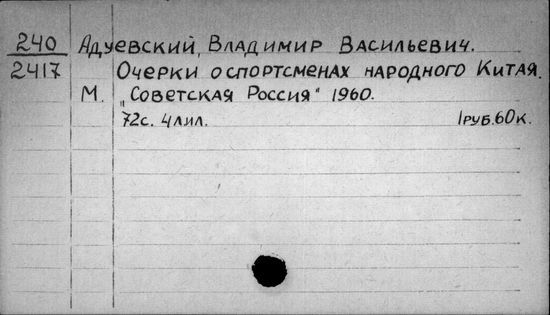 240 Адуевский, Владимир Васильевич.
2417 Очерки о спортсменах народного Китая.
М. „Советская Россия" 1960.
72с. 4лил. 1руб.60к.